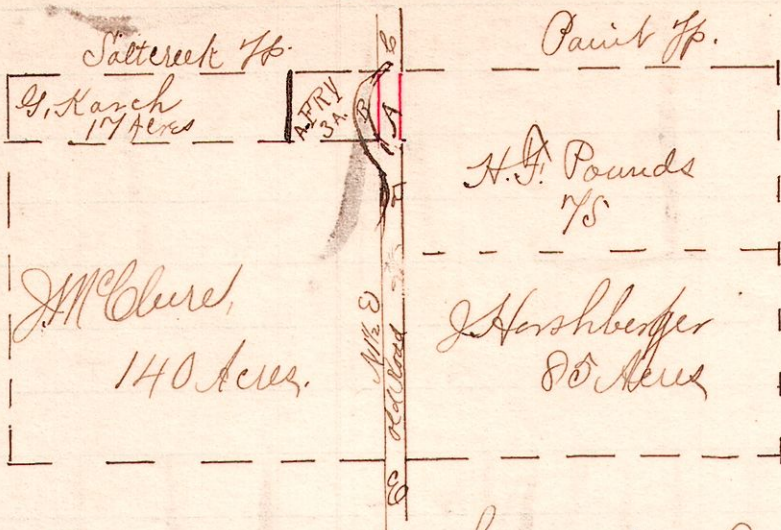 Saltcreek Tp.
Paint Tp.
G. Karch
17 Acres
A. FRY
3 A.
B
A
H. F. Pounds
75
J McClure,
140 Acres.
J Hershberger
85 Acres
N 1/2 E
Old Road